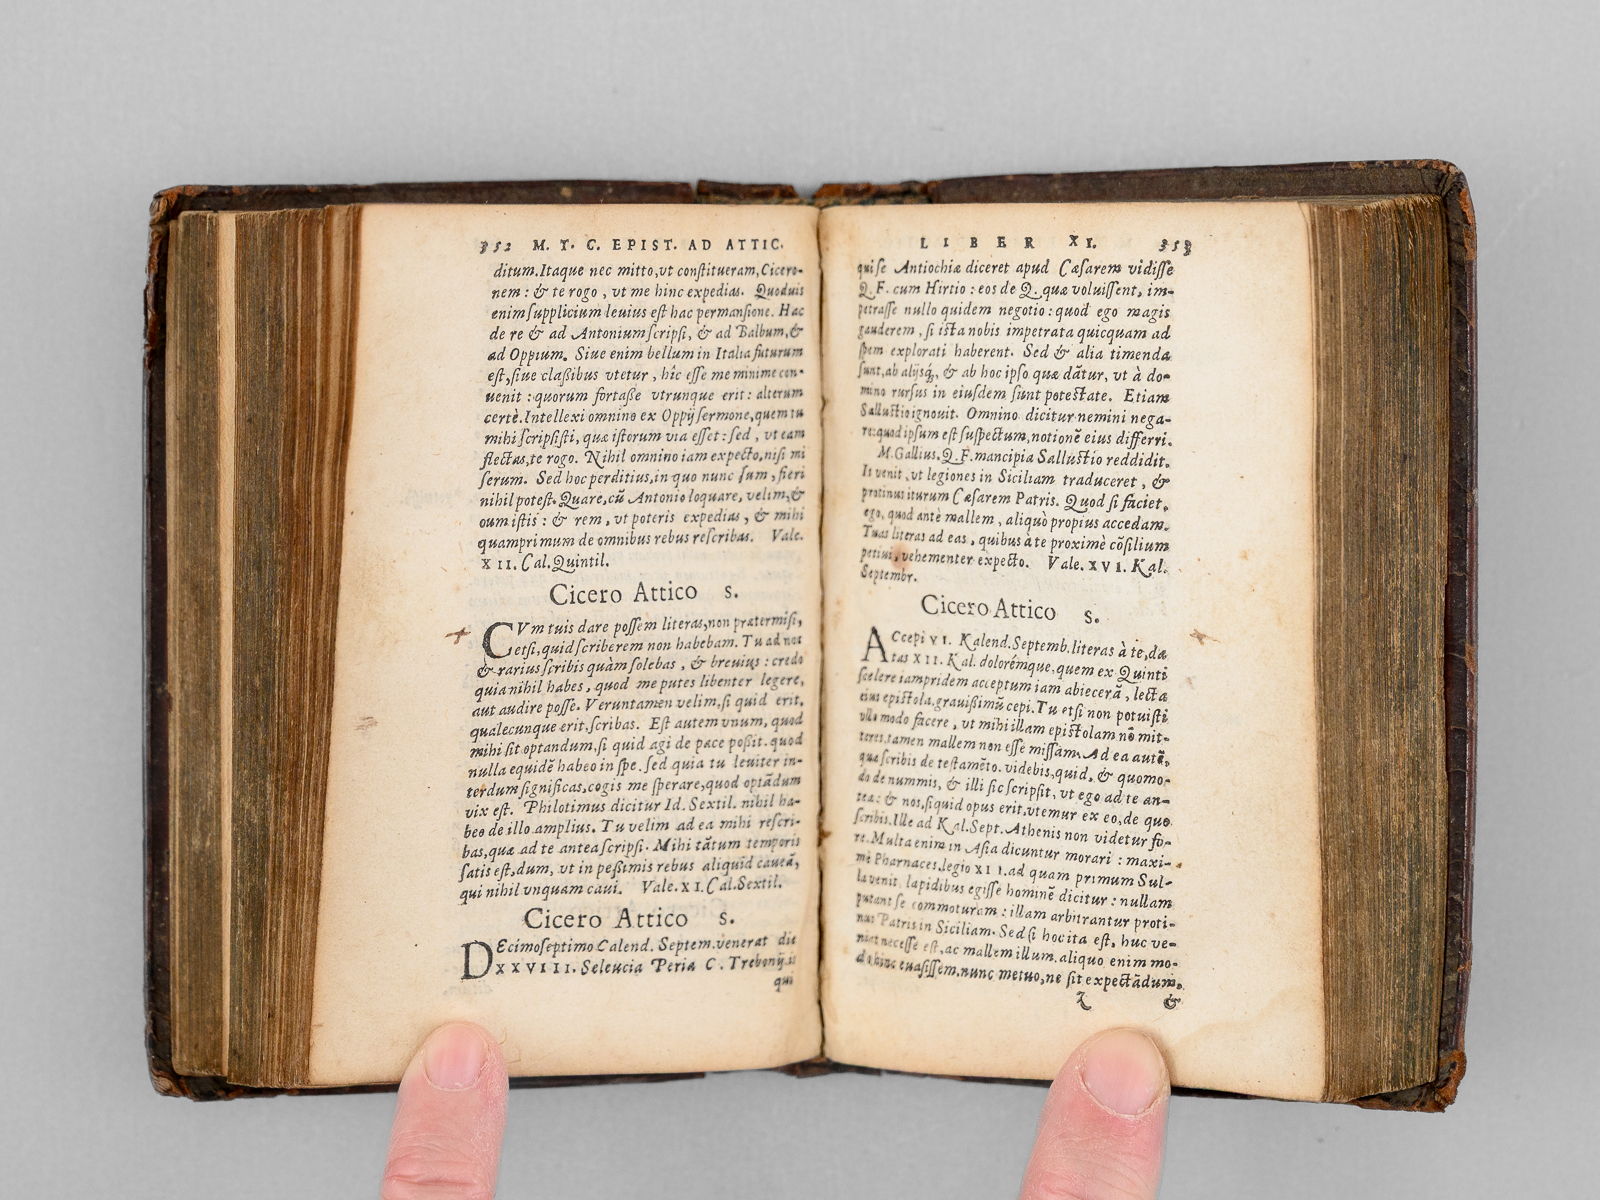 352 M. T. C. EPIST. AD ATTIC.
ditum. Itaque nec mitto, vt constitueram, Cicero-
nem: & te rogo, vt me hinc expedias. Quoduis
enim supplicium leuius est hac permansione. Hac
de re & ad Antonium scripsi, & ad Balbum, &
ad Oppium. Siue enim bellum in Italia futurum
est, siue claßibus vtetur, hîc esse me minime con-
uenit: quorum fortaße vtrunque erit: alterum
certè. Intellexi omnino ex Oppij sermone, quem tu
mihi scripsisti, quæ istorum via esset: sed, vt eam
flectas, te rogo. Nihil omnino iam expecto, nisi mi
serum. Sed hoc perditius, in quo nunc sum, fieri
nihil potest. Quare, cū Antonio loquare, velim, &
oum istis: & rem, vt poteris expedias, & mihi
quamprimum de omnibus rebus rescribas. Vale.
XII. Cal. Quintil.
Cicero Attico S.
CVm tuis dare possem literas, non prætermisi,
etsi, quid scriberem non habebam. Tu ad nos
& rarius scribis quàm solebas, & breuius: credo
quia nihil habes, quod me putes libenter legere,
aut audire posse. Veruntamen velim, si quid erit,
qualecunque erit, scribas. Est autem vnum, quod
mihi sit optandum, si quid agi de pace poßit. quod
nulla equidē habeo in spe. sed quia tu leuiter in-
terdum significas, cogis me sperare, quod optādum
vix est. Philotimus dicitur Id. Sextil. nihil ha-
beo de illo amplius. Tu velim ad ea mihi rescri-
bas, quæ ad te antea scripsi. Mihi tātum temporis
satis est, dum, vt in peßimis rebus aliquid caueā,
qui nihil vnquam caui. Vale. XI. Cal. Sextil.
Cicero Attico S.
DEcimoseptimo Calend. Septem. venerat die
XXVIII. Seleucia Peria C. Trebonij. is
qui
LIBER XI. 353
qui se Antiochiæ diceret apud Cæsarem vidisse
Q. F. cum Hirtio: eos de Q. quæ voluissent, im-
petrasse nullo quidem negotio: quod ego magis
gauderem, si ista nobis impetrata quicquam ad
spem explorati haberent. Sed & alia timenda
sunt, ab alijsq́, & ab hoc ipso quæ dātur, vt à do-
mino rursus in eiusdem sunt potestate. Etiam
Sallustio ignouit. Omnino dicitur nemini nega-
re: quod ipsum est suspectum, notionē eius differri.
M. Gallius. Q. F. mancipia Sallustio reddidit.
Is venit, vt legiones in Siciliam traduceret, &
protinus iturum Cæsarem Patris. Quod si faciet,
ego, quod antè mallem, aliquò propius accedam.
Tuas literas ad eas, quibus à te proximè cōsilium
petiui, vehementer expecto. Vale. XVI. Kal.
Septembr.
Cicero Attico S.
ACcepi VI. Kalend. Septemb. literas à te, da
tas XII. Kal. dolorémque, quem ex Quinti
scelere iampridem acceptum iam abiecerā, lecta
eius epistola, grauißimū cepi. Tu etsi non potuisti
vllo modo facere, vt mihi illam epistolam nō mit-
teres, tamen mallem non esse missam. Ad ea autē,
quæ scribis de testamēto. videbis, quid, & quomo-
do de nummis, & illi sic scripsit, vt ego ad te an-
tea: & nos, siquid opus erit, vtemur ex eo, de quo
scribis. Ille ad Kal. Sept. Athenis non videtur fo-
re. Multa enim in Asia dicuntur morari: maxi-
mè Pharnaces. legio XII. ad quam primum Sul-
la venit, lapidibus egisse hominē dicitur: nullam
putant se commoturam: illam arbitrantur proti-
nus Patris in Siciliam. Sed si hoc ita est, huc ve-
niat necesse est, ac mallem illum. aliquo enim mo-
do hinc euasissem. nunc metuo, ne sit expectādum.
Z &